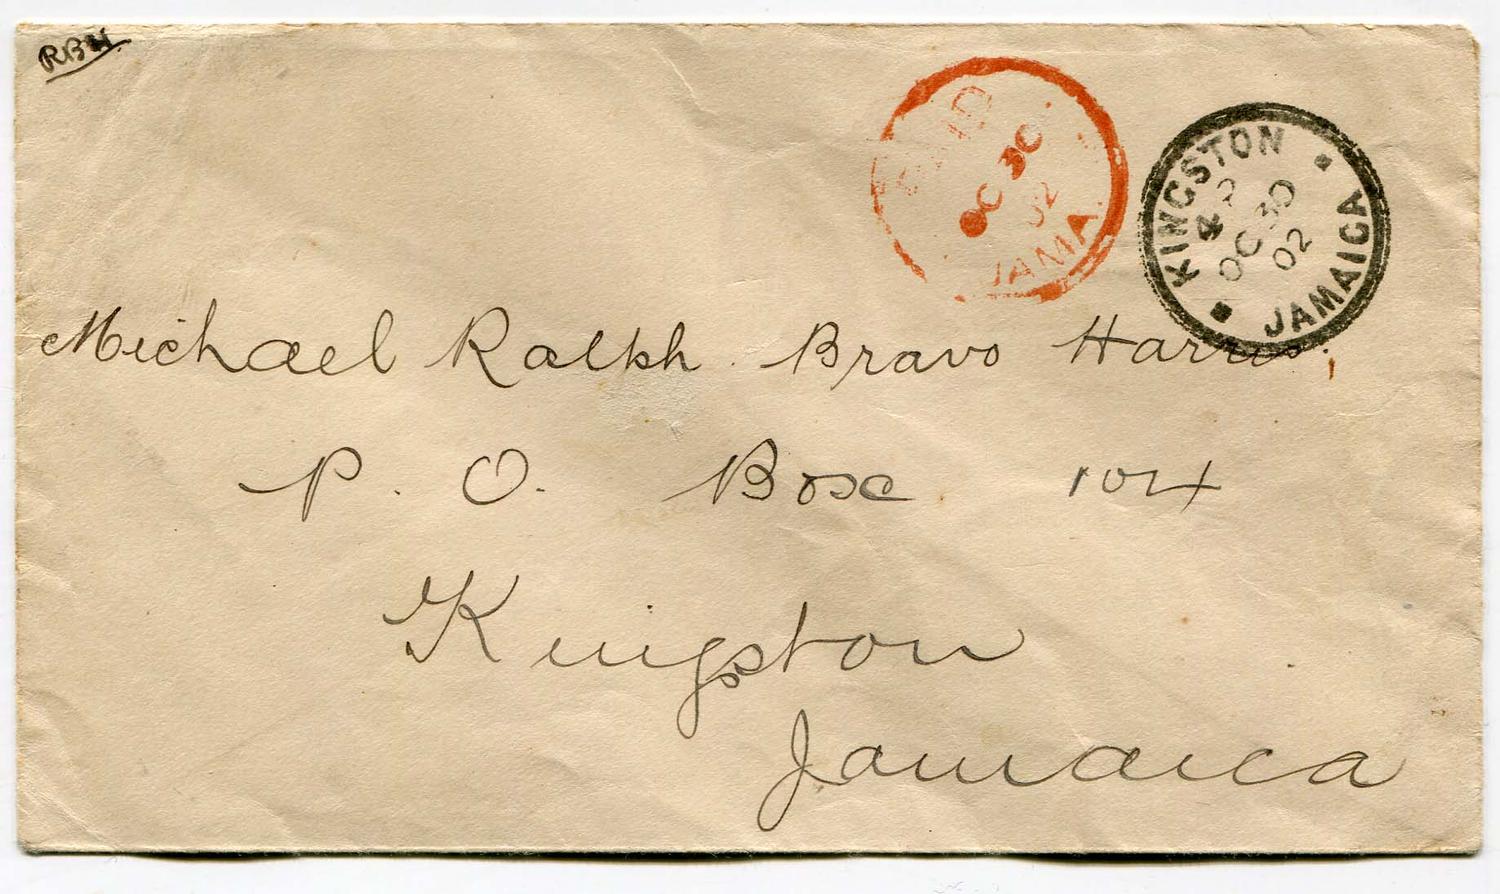 RBH
PAID
OC 30
02
JAMA.
KINGSTON
2
OC 30
02
JAMAICA
Michael Ralph Bravo Harris.
P. O. Box 104
Kingston
Jamaica